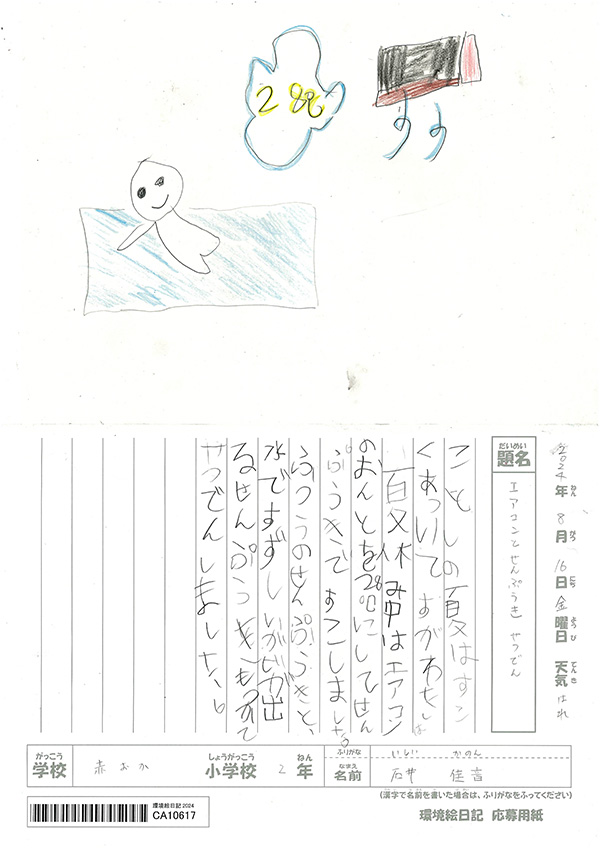 28℃
2024年ねん 8月がつ 16日にち 金曜日ようび 天気てんき はれ
だいめい
題名
エアコンとせんぷうき せつでん
ことしの夏はすご
くあつい
夏休み中はエアコン
のおんとを28℃にしてせん
ぷうきですごしました。
ふつうのせんぷうきと、
水ですずしいかぜが出
るせんぷうきもつかって
せつでんしました。
がっこう しょうがっこう ねん ふりがな いしい かのん
学校 赤おか 小学校 2年 なまえ 名前 石井 佳音
(漢字で名前を書いた場合は、ふりがなをふってください)
環境絵日記2024
CA10617
環境絵日記 応募用紙